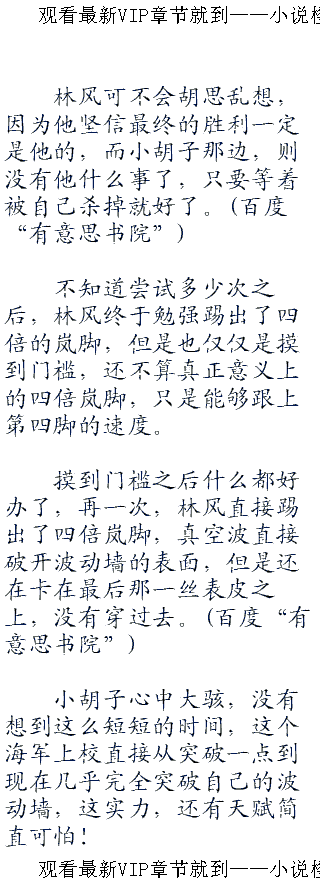 观看最新VIP章节就到——小说
林风可不会胡思乱想，
因为他坚信最终的胜利一定
是他的，而小胡子那边，则
没有他什么事了，只要等着
被自己杀掉就好了。(百度
“有意思书院”)
不知道尝试多少次之
后，林风终于勉强踢出了四
倍的岚脚，但是也仅仅是摸
到门槛，还不算真正意义上
的四倍岚脚，只是能够跟上
第四脚的速度。
摸到门槛之后什么都好
办了，再一次，林风直接踢
出了四倍岚脚，真空波直接
破开波动墙的表面，但是还
在卡在最后那一丝表皮之
上，没有穿过去。(百度“有
意思书院”)
小胡子心中大骇，没有
想到这么短短的时间，这个
海军上校直接从突破一点到
现在几乎完全突破自己的波
动墙，这实力，还有天赋简
直可怕！
观看最新VIP章节就到——小说